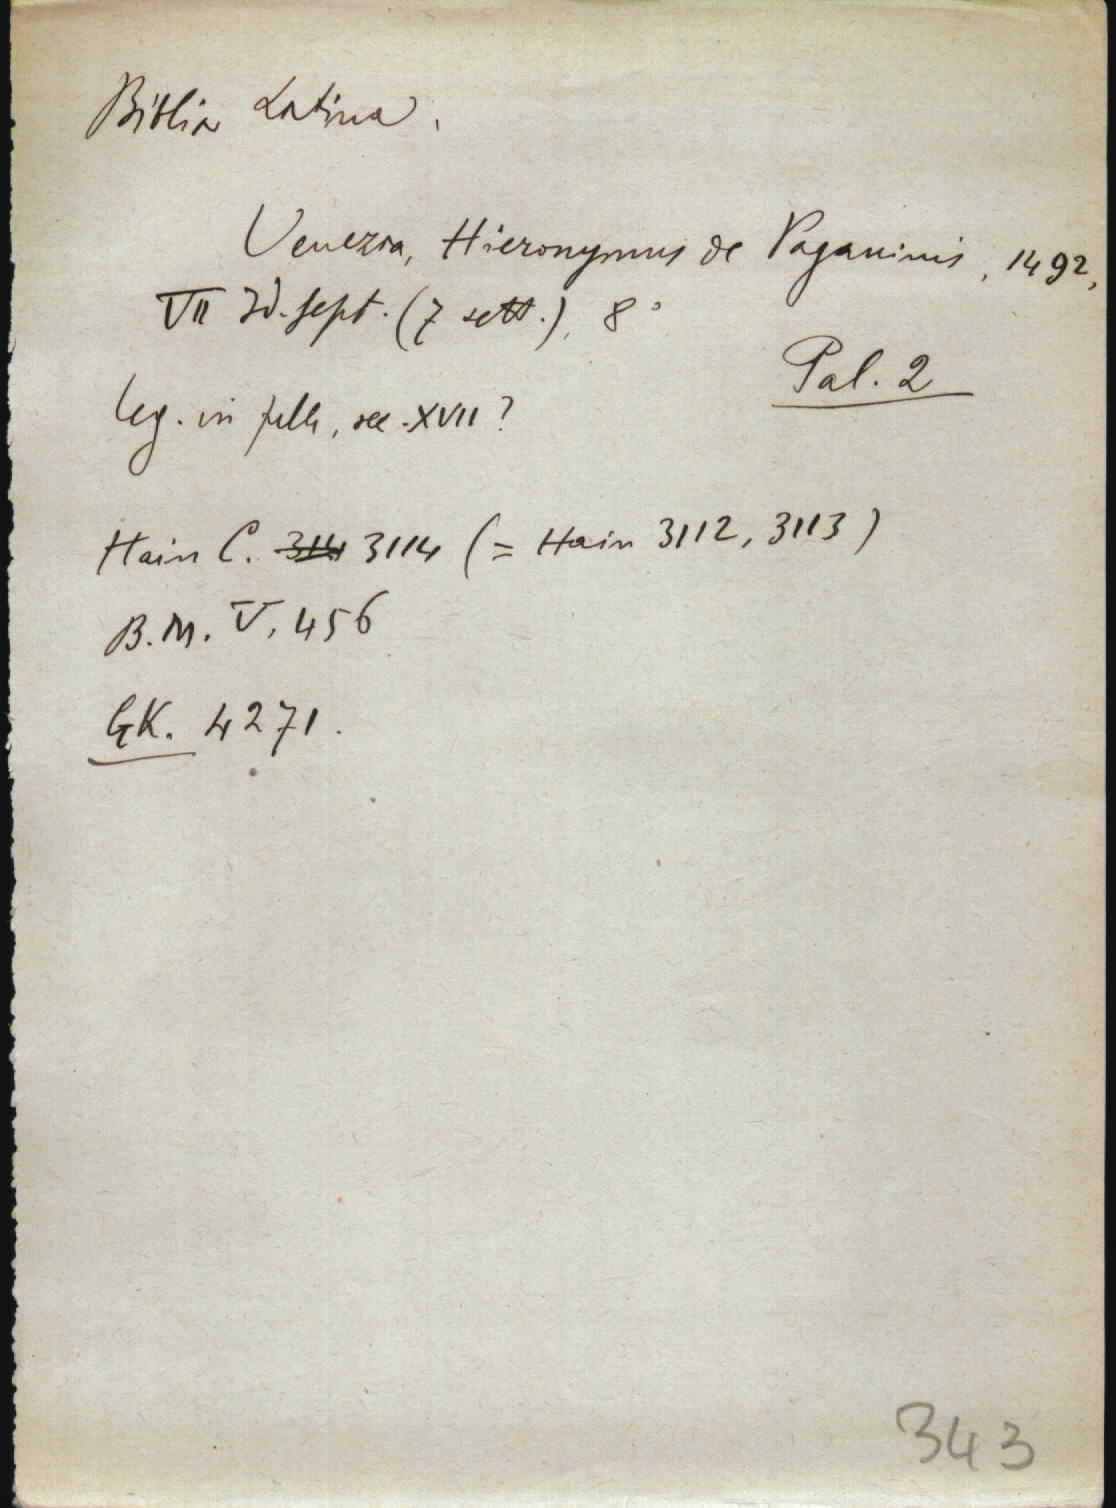 Biblia Latina.
Venezia, Hieronymus de Paganinis, 1492,
VII Id. sept. (7 sett.), 8°
Pal. 2
leg. in pelle, sec. XVII?
Hain C. 3114 3114 (= Hain 3112, 3113)
B.M. V, 456
GK. 4271.
343